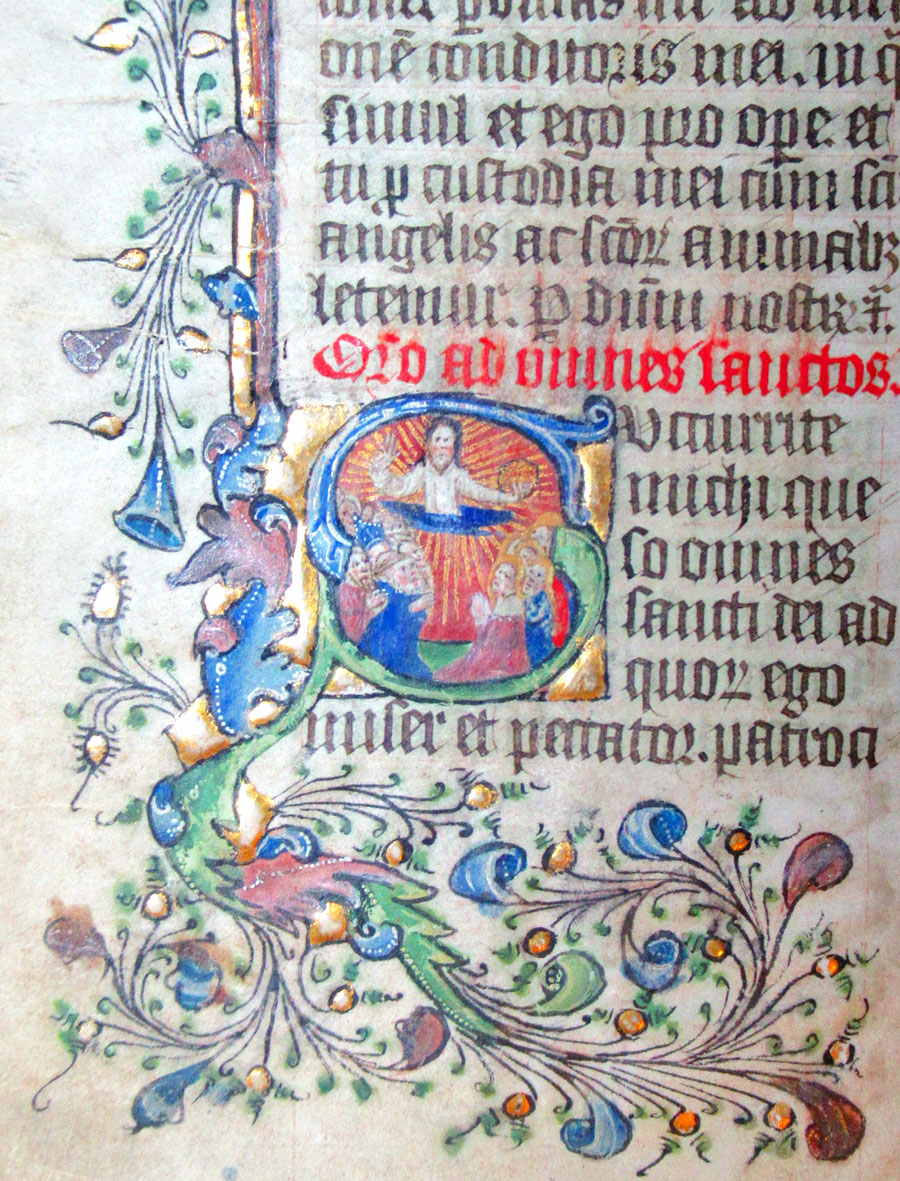 onē conditoris mei. in q̄
simul et ego pro ope. et
tu ꝑ custodia mei cum sc̄i
angelis ac sc̄oꝝ animabꝫ
letemur. ꝑ dn̄m nostꝝ.
Oro ad omnes sanctos.
Succurrite
michi que
so omnes
sancti dei ad
quoꝝ ego
miser et peccator. patroci